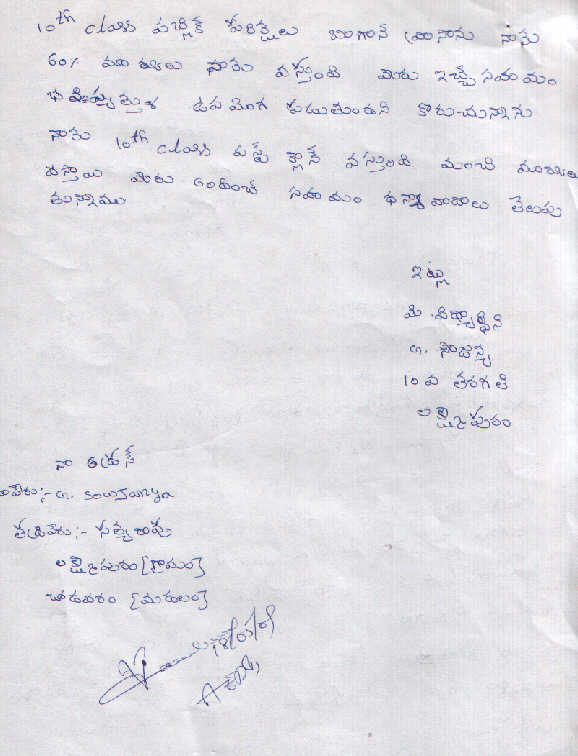 10th class పబ్లిక్ పరీక్షలు బాగానే రాసినాను నాకు
60% మార్కులు నాకు వస్తుంది మీరు ఇచ్చే సహాయం
భవిష్యత్తుకి ఉపయోగ పడుతుందని కోరుచున్నాను
నాకు 10th class ఫస్ట్ క్లాస్ వస్తుంది మంచి మార్కులు
వస్తాయి మీరు అందించే సహాయం ధన్యావాదాలు తెలుపు
తున్నాము
ఇట్లు
మీ విద్యార్థిని
G. సౌజన్య
10వ తరగతి
లక్ష్మీపురం
నా అడ్రస్
పేరు:- G. Sowjanya
తండ్రిపేరు:- సత్యారావు
లక్ష్మీపురం [గ్రామం]
చోడవరం [మండలం]